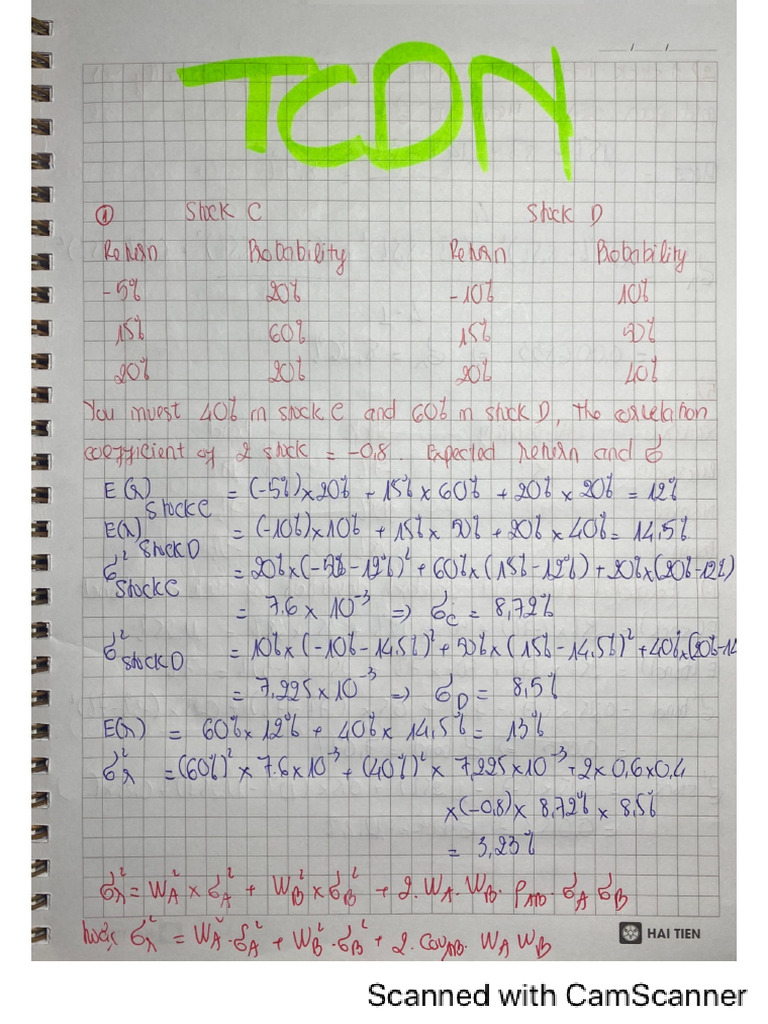 TCDN
/ /
① Stock C Stock D
Return Probability Return Probability
-5% 20% -10% 10%
15% 60% 15% 50%
20% 20% 20% 40%
You invest 40% in stock C and 60% in stock D, the correlation
coefficient of 2 stock = -0,8. Expected return and σ
E(r) Stock C = (-5%) × 20% + 15% × 60% + 20% × 20% = 12%
E(r) Stock D = (-10%) × 10% + 15% × 50% + 20% × 40% = 14,5%
σ² Stock C = 20% × (-5% - 12%)² + 60% × (15% - 12%) + 20% × (20% - 12%)
= 7.6 × 10⁻³ => σC = 8,72%
σ² Stock D = 10% × (-10% - 14,5%)² + 50% × (15% - 14,5%)² + 40% × (20% - 14
= 7,225 × 10⁻³ => σD = 8,5%
E(r) = 60% × 12% + 40% × 14,5% = 13%
σ²r = (60%)² × 7.6 × 10⁻³ + (40%)² × 7,225 × 10⁻³ + 2 × 0,6 × 0,4
× (-0,8) × 8,72% × 8,5%
= 3,23%
σ²r = W²A × σ²A + W²B × σ²B + 2. WA. WB. ρAB. σA σB
hoặc σ²r = W²A . σ²A + W²B . σ²B + 2. CovAB. WA WB
HAI TIEN
Scanned with CamScanner